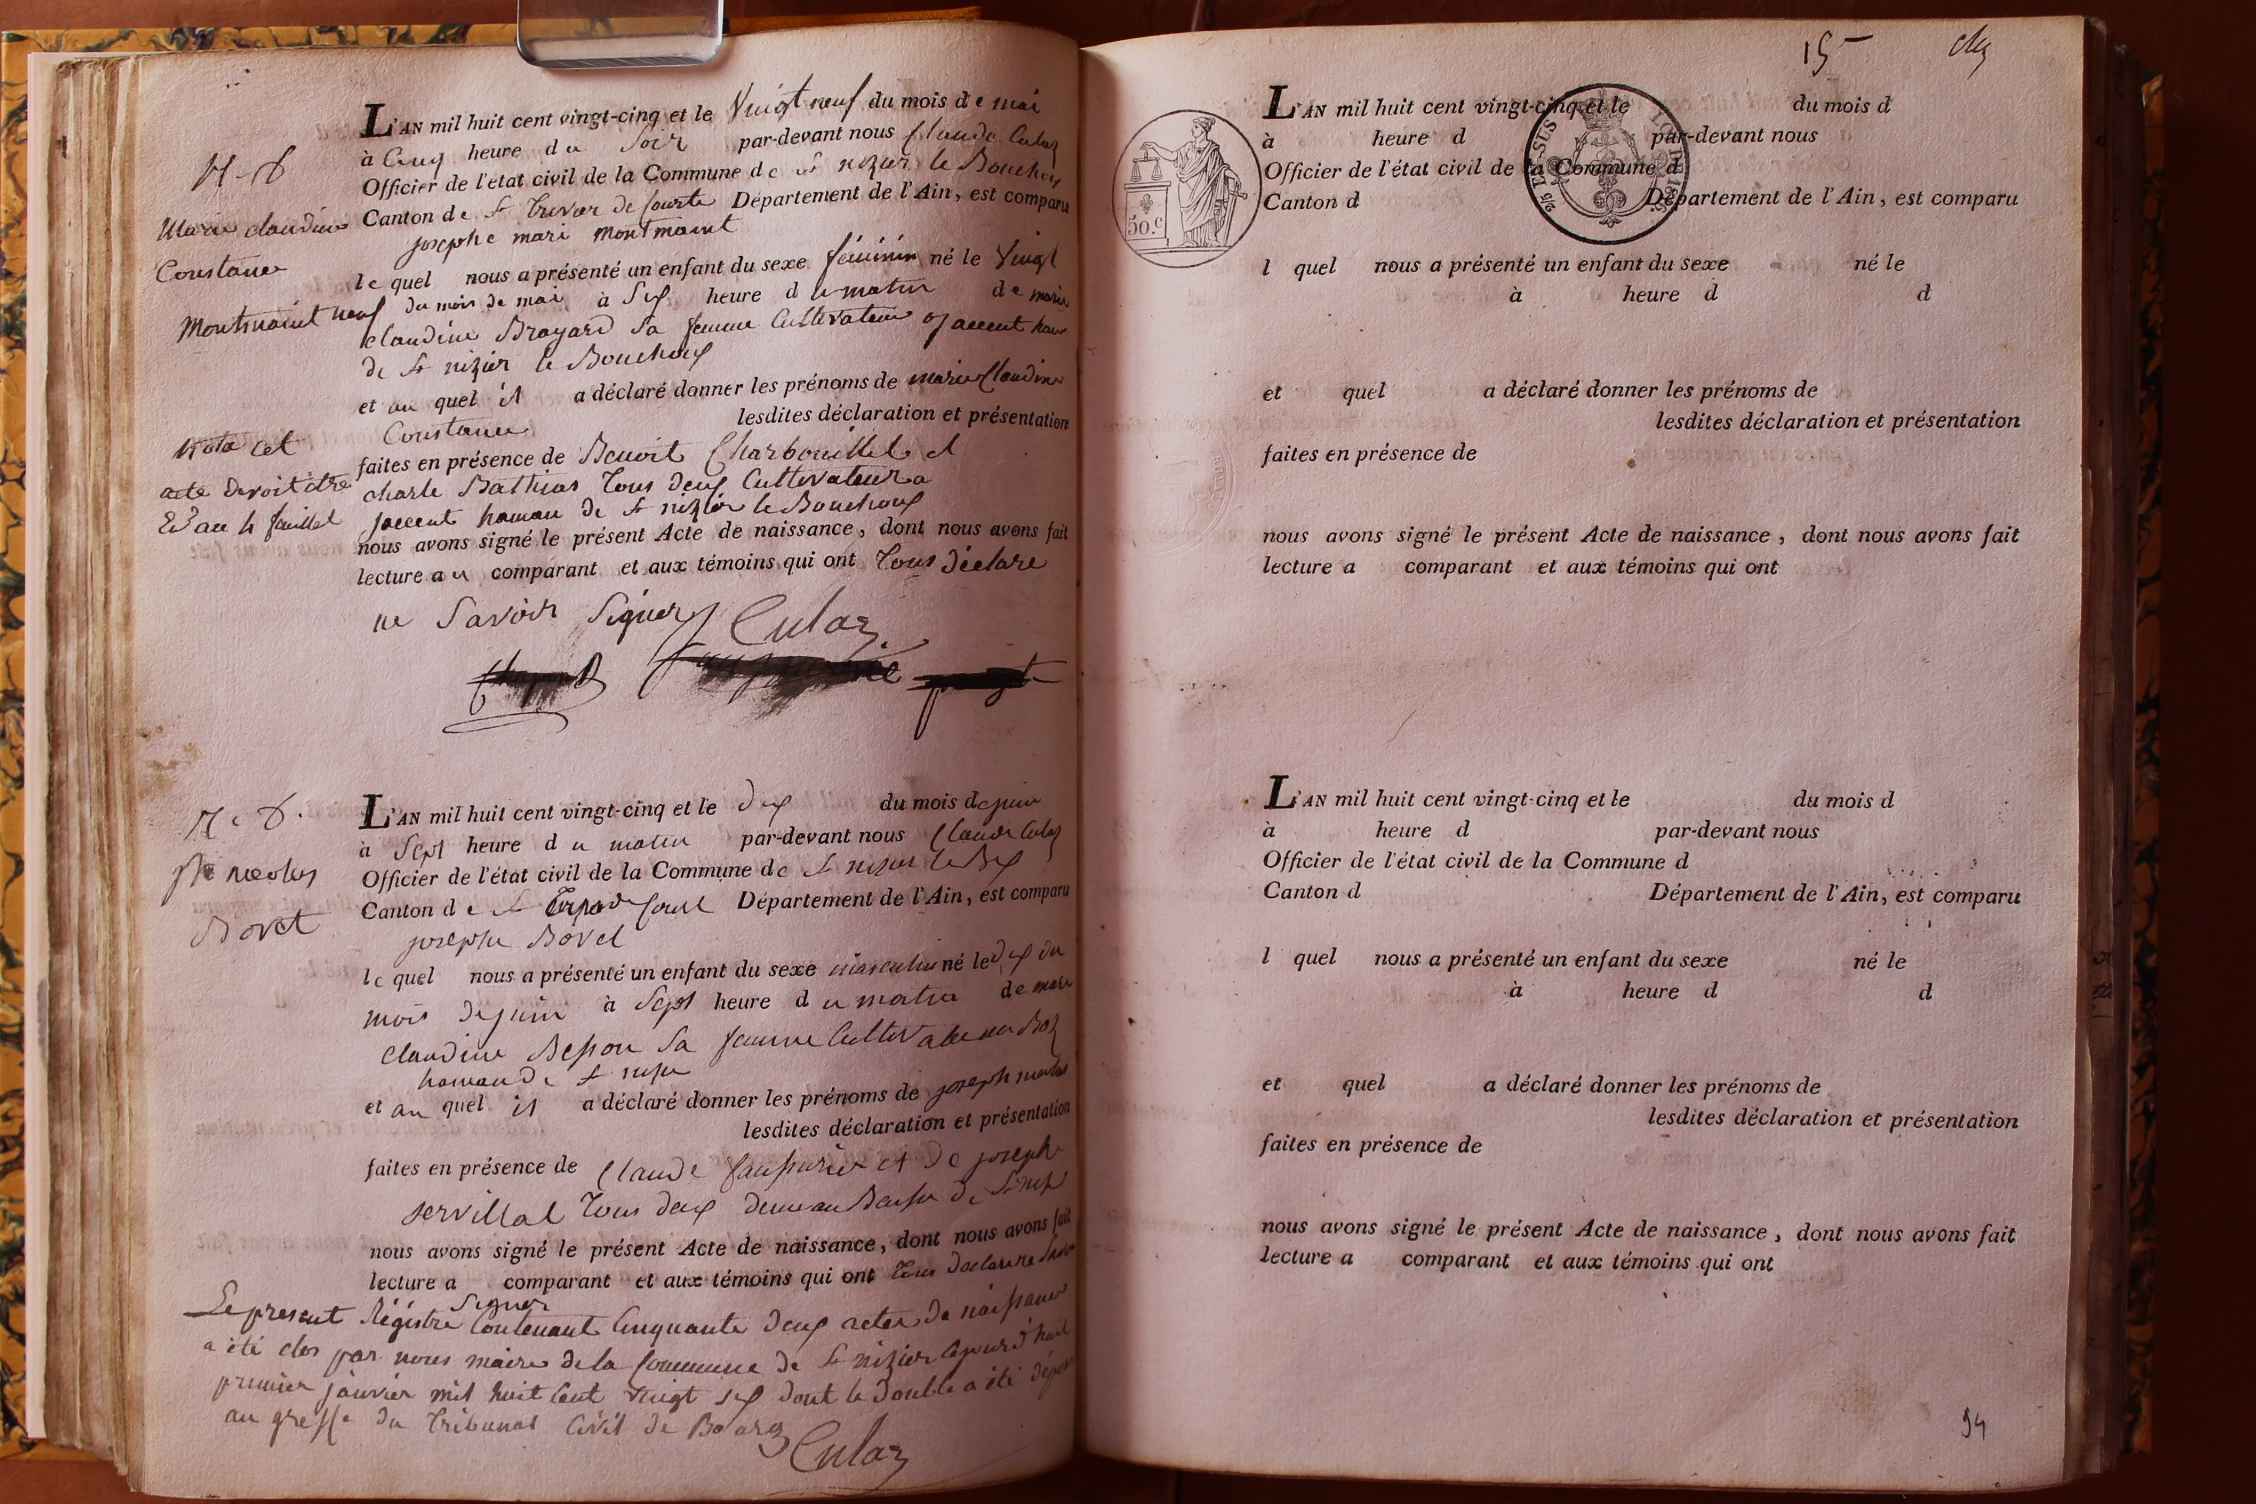 N.o 8
Marie claudine
Constance
Montmaint
Nota cet
acte devoit être
au 4 feuillet
L'AN mil huit cent vingt-cinq et le Vingt neuf du mois de mai
à Cinq heure du Soir par-devant nous Claude Culaz
Officier de l'état civil de la Commune de St nizier le Bouchoux
Canton de St Trivier de Courte Département de l'Ain, est comparu
josephe mari Montmaint
le quel nous a présenté un enfant du sexe féminin né le Vingt
neuf du mois de mai à Six heure du matin de marie
claudine Brayard Sa femme Cultivateur
de St nizier le Bouchoux
et au quel il a déclaré donner les prénoms de marie Claudine
Constance lesdites déclaration et présentation
faites en présence de Benoit Charbouillet et
charle Bathias Tous deux Cultivateur a
hamau de St nizier le Bouchoux
nous avons signé le présent Acte de naissance, dont nous avons fait
lecture au comparant et aux témoins qui ont Tous déclare
ne Savoir Signer Culaz
joseph nicolas
Bovet
L'AN mil huit cent vingt-cinq et le dix du mois de juin
à Sept heure du matin par-devant nous Claude Culaz
Officier de l'état civil de la Commune de St nizier le Bx
Canton de St Département de l'Ain, est comparu
josephe Bovet
le quel nous a présenté un enfant du sexe masculin né le dix du
mois de juin à Sept heure du matin de marie
claudine Besson Sa femme Cultivateur
hamau de St nizier
et au quel il a déclaré donner les prénoms de joseph nicolas
lesdites déclaration et présentation
faites en présence de Claude et de joseph
Servillat Tous deux de St
nous avons signé le présent Acte de naissance, dont nous avons fait
lecture a comparant et aux témoins qui ont Tous declare ne Savoir
Signer
Le present Régistre Contenant Cinquante deux actes de naissance
a été clos par nous maire de la Commune de St nizier Cejourd'huit
premier janvier mil huit Cent Vingt six dont le double a été déposé
au greffe du Tribunal Civil de Bourg
Culaz
15
50.c
L'AN mil huit cent vingt-cinq et le du mois d
à heure d par-devant nous
Officier de l'état civil de la Commune d
Canton d Département de l'Ain, est comparu
l quel nous a présenté un enfant du sexe né le
à heure d d
et quel a déclaré donner les prénoms de
lesdites déclaration et présentation
faites en présence de
nous avons signé le présent Acte de naissance, dont nous avons fait
lecture a comparant et aux témoins qui ont
L'AN mil huit cent vingt-cinq et le du mois d
à heure d par-devant nous
Officier de l'état civil de la Commune d
Canton d Département de l'Ain, est comparu
l quel nous a présenté un enfant du sexe né le
à heure d d
et quel a déclaré donner les prénoms de
lesdites déclaration et présentation
faites en présence de
nous avons signé le présent Acte de naissance, dont nous avons fait
lecture a comparant et aux témoins qui ont
94